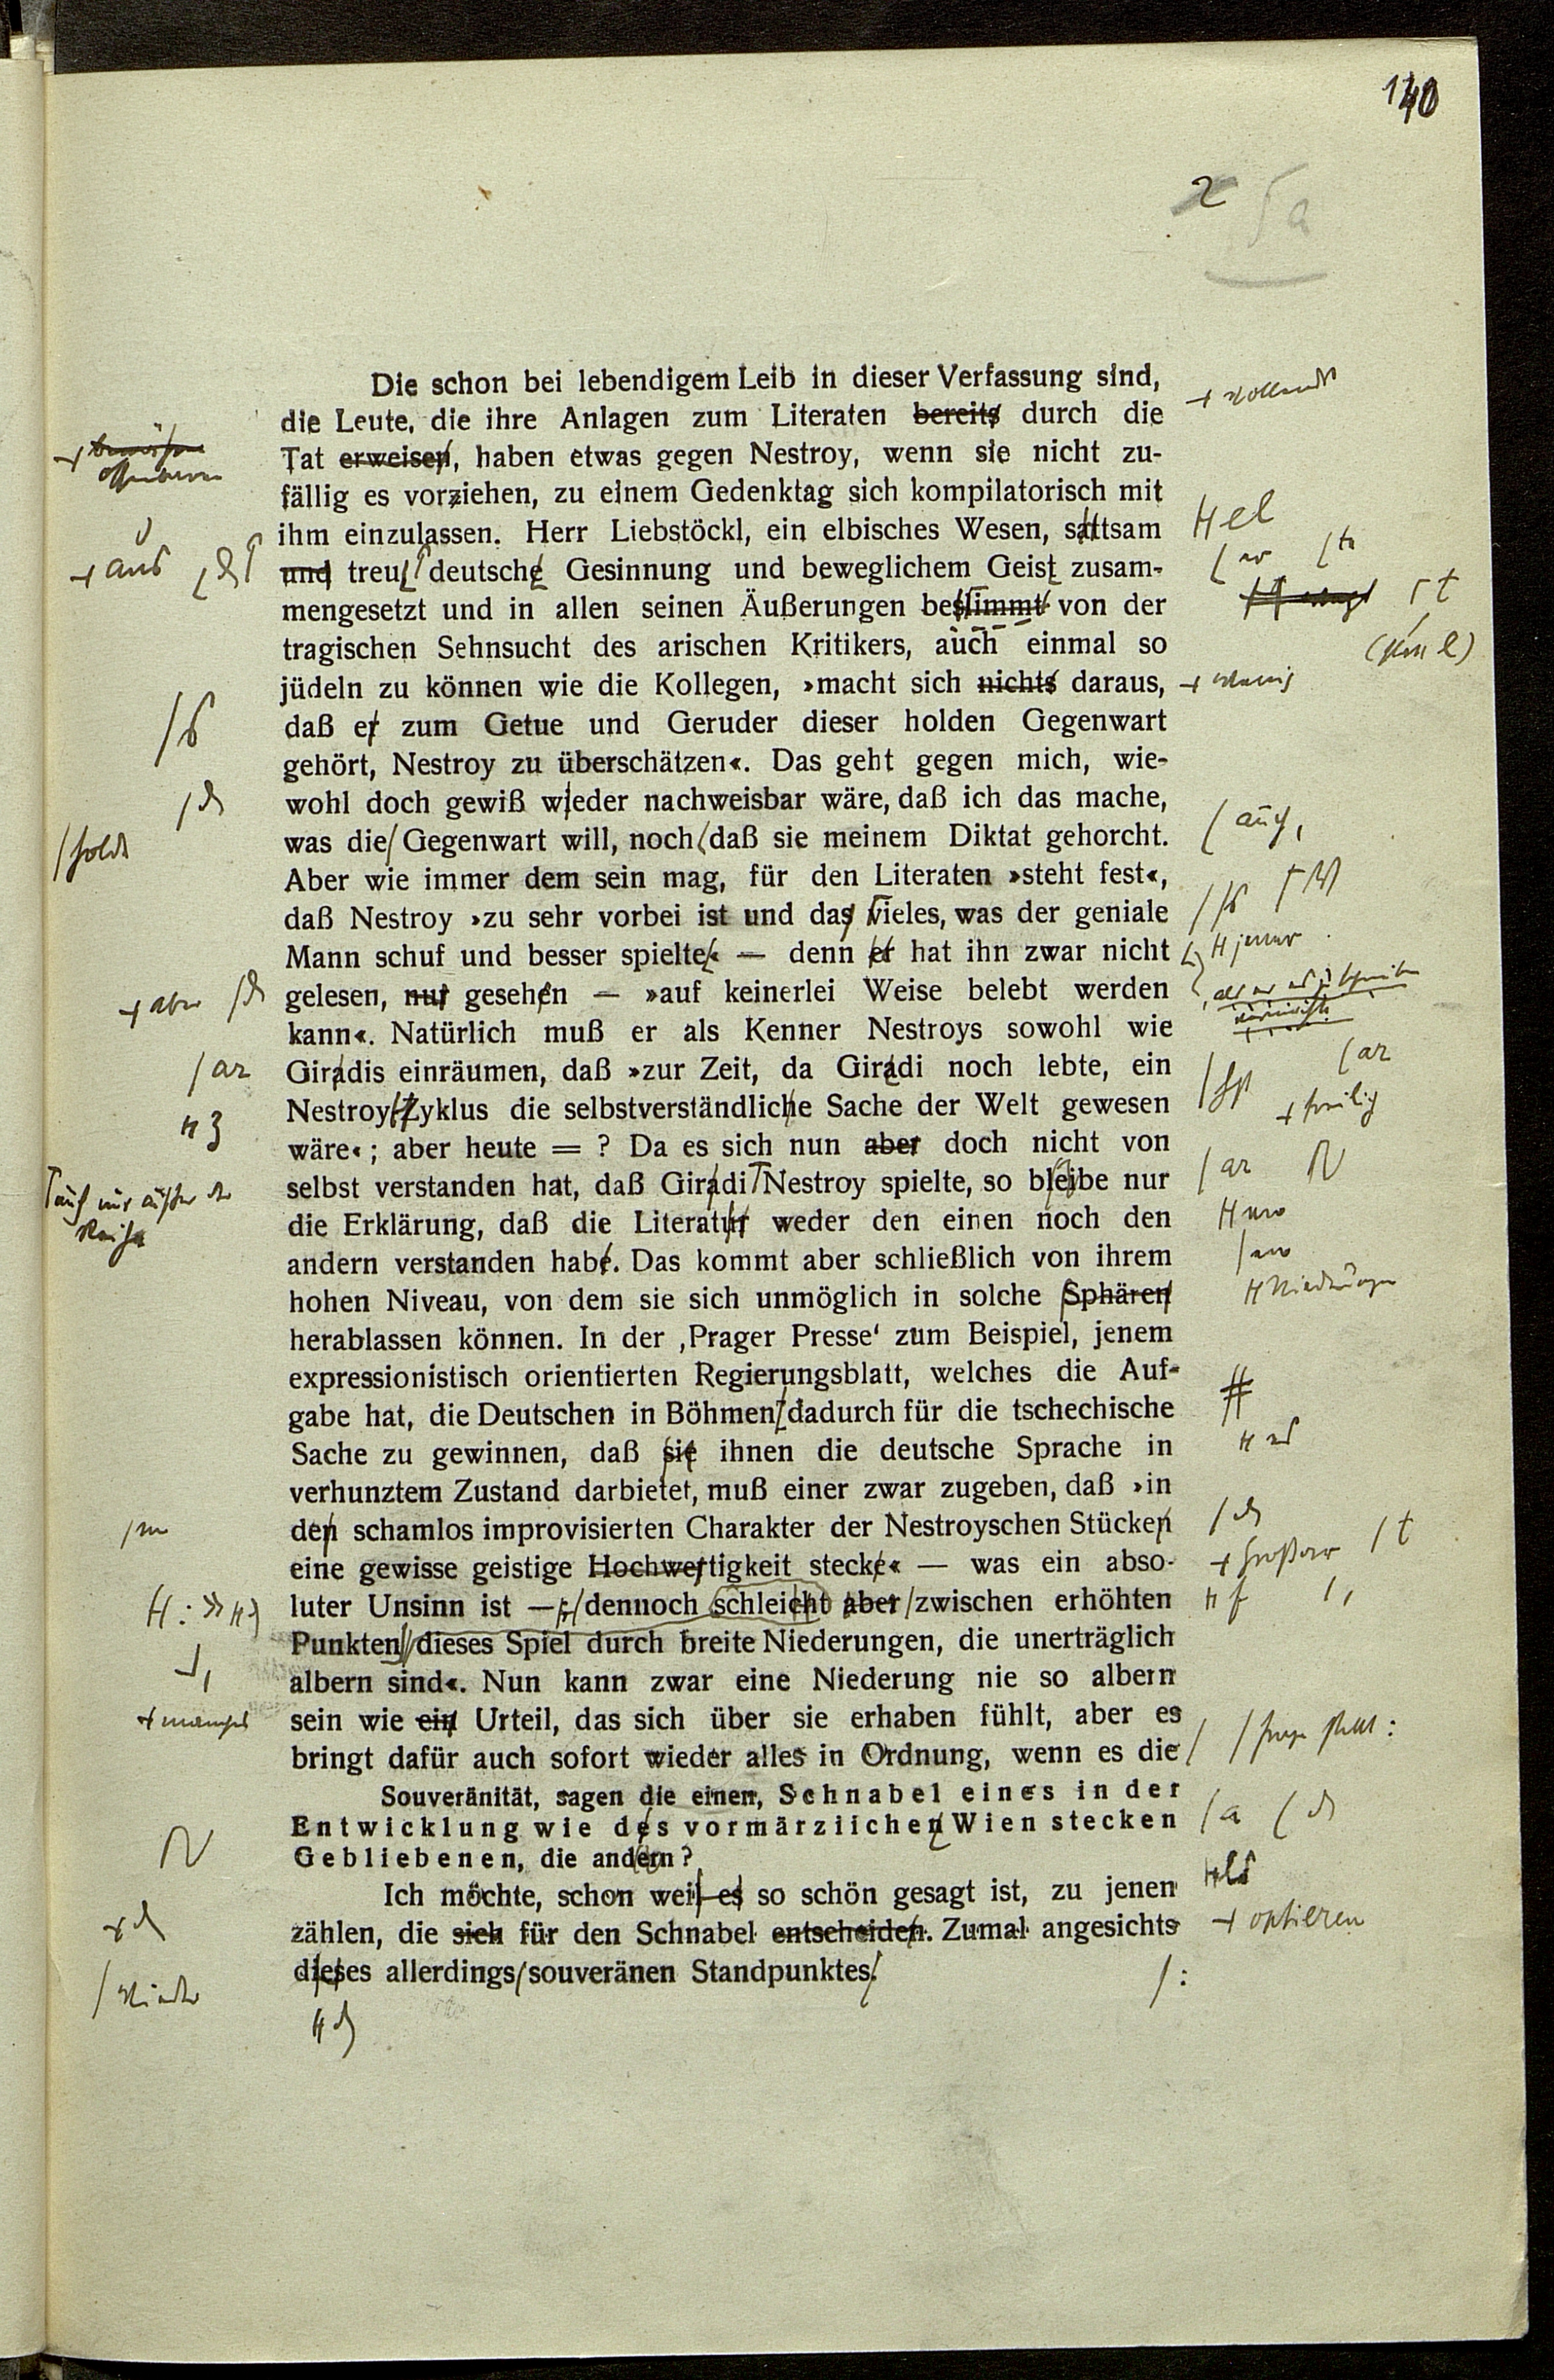 140
2 5a
Die schon bei lebendigem Leib in dieser Verfassung sind,
die Leute, die ihre Anlagen zum Literaten bereits durch die
Tat erweisen, haben etwas gegen Nestroy, wenn sie nicht zu-
fällig es vorziehen, zu einem Gedenktag sich kompilatorisch mit
ihm einzulassen. Herr Liebstöckl, ein elbisches Wesen, sattsam
und treu deutsche Gesinnung und beweglichem Geist zusam-
mengesetzt und in allen seinen Äußerungen bestimmt von der
tragischen Sehnsucht des arischen Kritikers, auch einmal so
jüdeln zu können wie die Kollegen, »macht sich nichts daraus,
daß er zum Getue und Geruder dieser holden Gegenwart
gehört, Nestroy zu überschätzen«. Das geht gegen mich, wie-
wohl doch gewiß wieder nachweisbar wäre, daß ich das mache,
was die Gegenwart will, noch daß sie meinem Diktat gehorcht.
Aber wie immer dem sein mag, für den Literaten »steht fest«,
daß Nestroy »zu sehr vorbei ist und das vieles, was der geniale
Mann schuf und besser spielte« — denn er hat ihn zwar nicht
gelesen, nur gesehen — »auf keinerlei Weise belebt werden
kann«. Natürlich muß er als Kenner Nestroys sowohl wie
Giradis einräumen, daß »zur Zeit, da Giradi noch lebte, ein
Nestroy-Zyklus die selbstverständliche Sache der Welt gewesen
wäre«; aber heute = ? Da es sich nun aber doch nicht von
selbst verstanden hat, daß Giradi Nestroy spielte, so bleibe nur
die Erklärung, daß die Literatur weder den einen noch den
andern verstanden habe. Das kommt aber schließlich von ihrem
hohen Niveau, von dem sie sich unmöglich in solche Sphären
herablassen können. In der ‚Prager Presse‘ zum Beispiel, jenem
expressionistisch orientierten Regierungsblatt, welches die Auf-
gabe hat, die Deutschen in Böhmen dadurch für die tschechische
Sache zu gewinnen, daß sie ihnen die deutsche Sprache in
verhunztem Zustand darbietet, muß einer zwar zugeben, daß »in
den schamlos improvisierten Charakter der Nestroyschen Stücken
eine gewisse geistige Hochwertigkeit stecke« — was ein abso-
luter Unsinn ist —; dennoch schleicht aber zwischen erhöhten
Punkten dieses Spiel durch breite Niederungen, die unerträglich
albern sind«. Nun kann zwar eine Niederung nie so albern
sein wie ein Urteil, das sich über sie erhaben fühlt, aber es
bringt dafür auch sofort wieder alles in Ordnung, wenn es die
Souveränität, sagen die einen, Schnabel eines in der
Entwicklung wie des vormärzlichen Wien stecken
Gebliebenen, die andern?
Ich möchte, schon weil es so schön gesagt ist, zu jenen
zählen, die sich für den Schnabel entscheiden. Zumal angesichts
dieses allerdings souveränen Standpunktes.
offenbaren
aus
aber
ar
el
er
t
wenig
auch,
jener
ar
freilich
ar
Niederungen
es
t
a
optieren